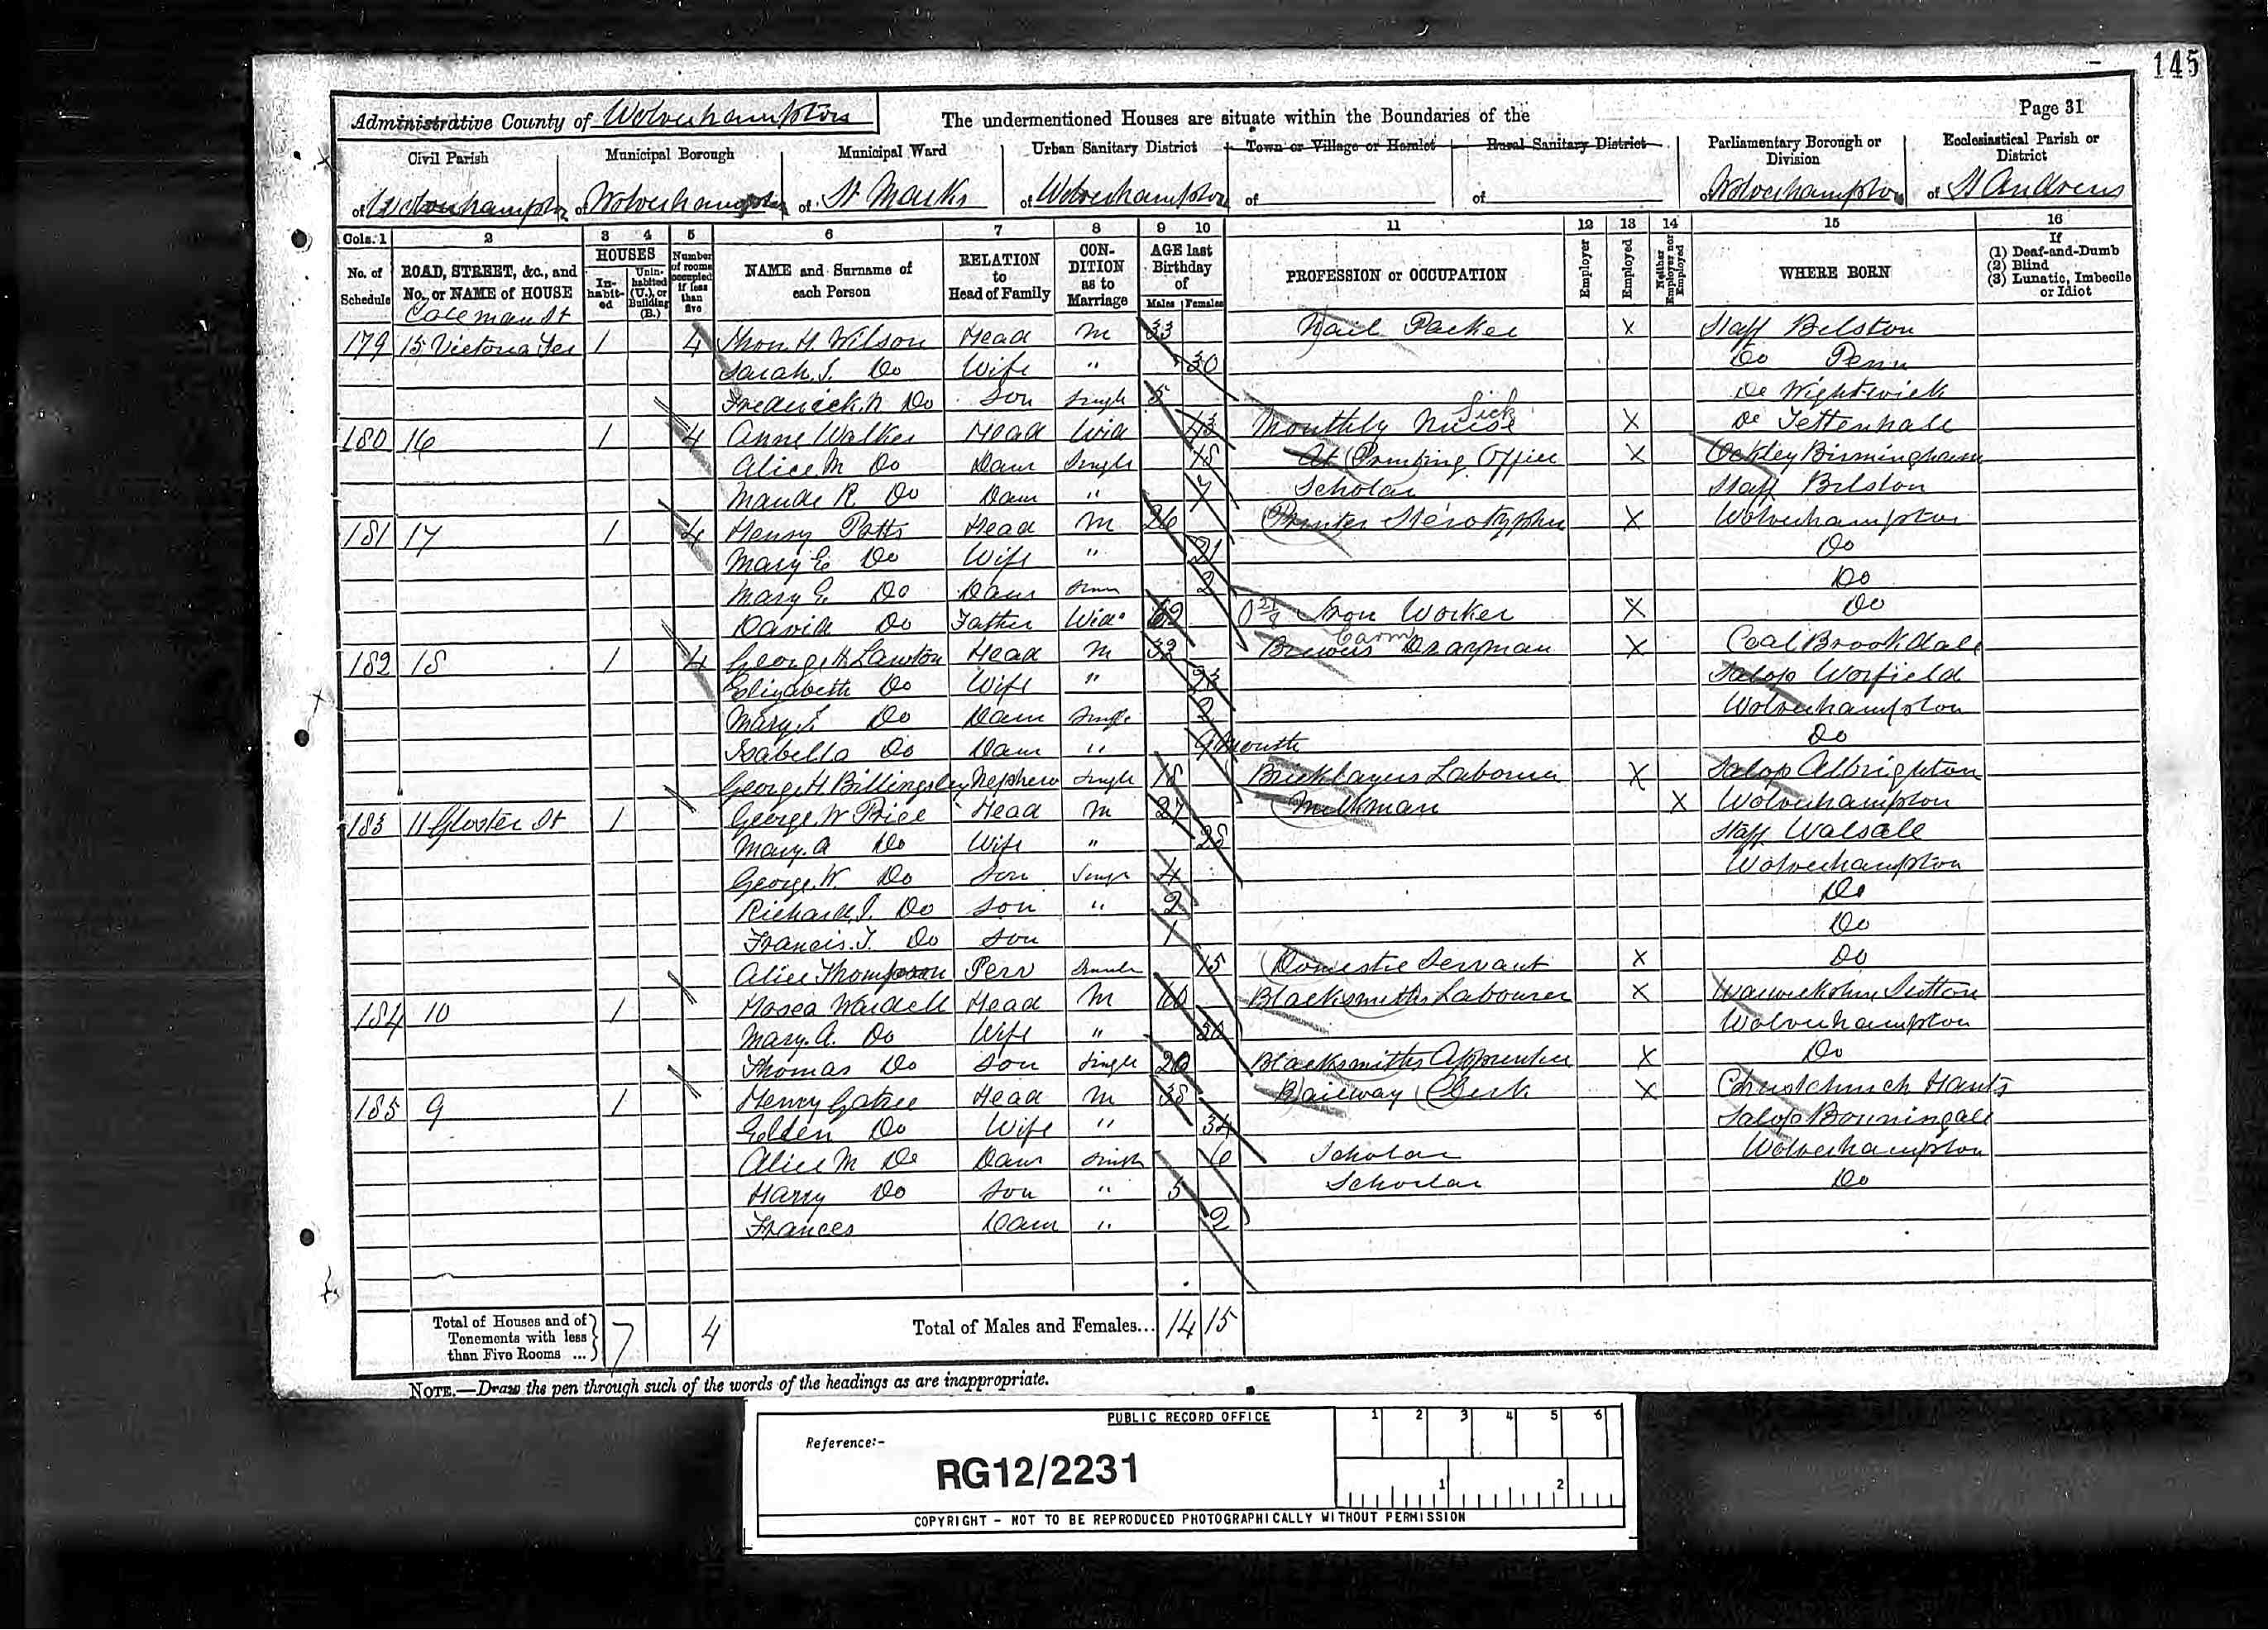 145
Administrative County of Wolverhampton
The undermentioned Houses are situate within the Boundaries of the
Page 31
Civil Parish
Municipal Borough
Municipal Ward
Urban Sanitary District
Town or Village or Hamlet
Rural Sanitary District
Parliamentary Borough or Division
Ecclesiastical Parish or District
of Wolverhampton
of Wolverhampton
of St Marks
of Wolverhampton
of
of
of Wolverhampton
of St Andrews
Cols. 1 2 3 4 5 6 7 8 9 10 11 12 13 14 15 16
No. of Schedule
ROAD, STREET, &c., and No. or NAME of HOUSE
HOUSES
Inhabited
Uninhabited (U.), or Building (B.)
Number of rooms occupied if less than five
NAME and Surname of each Person
RELATION to Head of Family
CONDITION as to Marriage
AGE last Birthday of
Males Females
PROFESSION or OCCUPATION
Employer
Employed
Neither Employer nor Employed
WHERE BORN
If
(1) Deaf-and-Dumb
(2) Blind
(3) Lunatic, Imbecile or Idiot
Coleman St
179 15 Victoria Ter 1 4 Thos H. Wilson Head M 33 Nail Packer X Staff Bilston
Sarah J. Do Wife " 30 Do Penn
Frederick N Do Son Single 5 Do Wightwick
180 16 1 4 Anne Walker Head Wid 43 Monthly Nurse Sick X Do Tettenhall
Alice M Do Daur Single 18 At Printing Office X Birmingham
Maude R Do Daur " 7 Scholar Staff Bilston
181 17 1 4 Henry Potts Head M 26 Printer X Wolverhampton
Mary E Do Wife " 21 Do
Mary E. Do Daur 2 Do
David Do Father Wid 62 Iron Worker X Do
182 18 1 4 George H Lawton Head M 32 Brewers Drayman Carm X Coal Brookdale
Elizabeth Do Wife " 23 Salop Worfield
Mary E Do Daur Single 2 Wolverhampton
Isabella Do Daur " 9 Month Do
George H Billingsley Nephew Single 18 Bricklayers Labourer X Salop Albrighton
183 11 Gloster St 1 George W Price Head M 27 Milkman X Wolverhampton
Mary. A Do Wife " 28 Staff Walsall
George. W. Do Son Single 4 Wolverhampton
Richard. J. Do Son " 2 Do
Francis. T. Do Son 1 Do
Alice Thompson Serv Single 15 Domestic Servant X Do
184 10 1 Hosea Wardell Head M 60 Blacksmiths Labourer X Warwickshire Sutton
Mary. A. Do Wife " 50 Wolverhampton
Thomas Do Son Single 20 Blacksmiths Apprentice X Do
185 9 1 Henry Head M 38 Railway Clerk X Christchurch Hants
Ellen Do Wife " 34 Salop Bonningale
Alice M Do Daur Single 6 Scholar Wolverhampton
Harry Do Son " 5 Scholar Do
Frances Daur " 2
Total of Houses and of Tenements with less than Five Rooms ... 7 4
Total of Males and Females... 14 15
NOTE.—Draw the pen through such of the words of the headings as are inappropriate.
PUBLIC RECORD OFFICE
Reference:-
RG12/2231
1 2 3 4 5 6
1 2
COPYRIGHT - NOT TO BE REPRODUCED PHOTOGRAPHICALLY WITHOUT PERMISSION